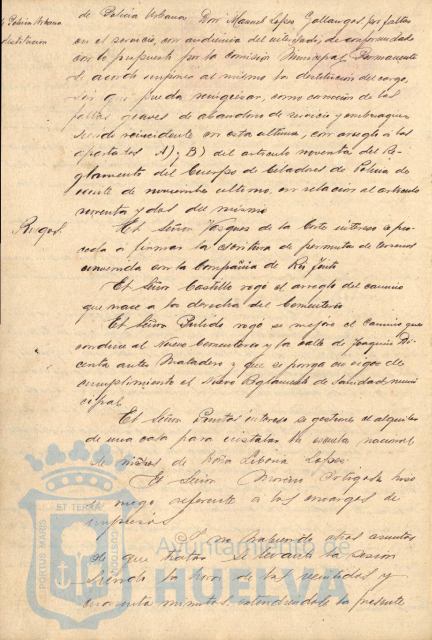 de Policia Urbana Don Manuel Lopez Gallangos por faltas
en el servicio, con audiencia del interesado, de conformidad
con lo propuesto por la Comisión Municipal Permanente
se acordó imponer al mismo la destitución del cargo,
sin que pueda reingresar, como comisión de las
faltas graves de abandono de servicio y embriaguez
siendo reincidente en esta ultima, con arreglo a los
apartados A) y B) del articulo noventa del Re-
glamento del Cuerpo de Celadores de Policia de
veinte de noviembre ultimo, en relación al articulo
noventa y dos del mismo
Ruegos. El Señor Vazquez de la Corte intereso se pro-
ceda a firmar la escritura de permuta de terrenos
convenida con la Compañia de Rio Tinto
El Señor Castillo rogó el arreglo del camino
que nace a la derecha del Cementerio
El Señor Pulido rogó se mejore el Camino que
conduce al Nuevo Cementerio y la calle de Joaquin Di-
centa antes Matadero y que se ponga en vigor el
cumplimiento el Nuevo Reglamento de Sanidad muni-
cipal
El Señor intereso se gestione el alquiler
de una casa para instalar la escuela nacional
de niñas de Doña Liboria Lopez
El Señor Moreno Ortigosa hizo
un ruego referente a los encargos de
impresos
Y no habiendo otros asuntos
de que tratar se levantó la sesion
siendo la hora de las veintidos y
cuarenta minutos, extendiendose la presente
de Policia Urbana
destitucion
ET TERRÆ
PORTUS MARIS
CUSTODIA
Ayuntamiento de
HUELVA